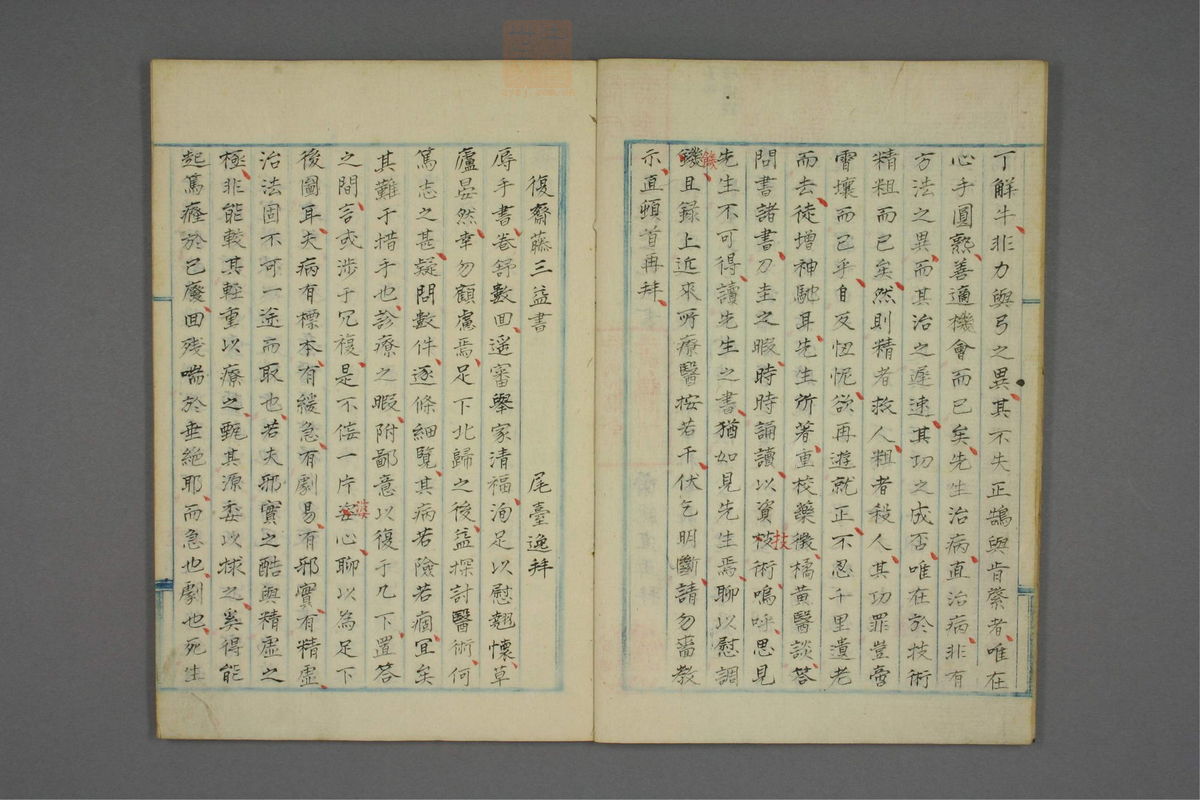 丁解牛非力與弓之異其不失正鵠與肯綮者唯在
心手圓熟善適機會而已矣先生治病直治病非有
方法之異而其治之遲速其功之成否唯在於技術
精粗而已矣然則精者救人粗者殺人其功罪豈啻
霄壤而已乎自反忸怩欲再遊就正不忍千里遺老
而去徒增神馳耳先生所著重校藥徵橘黃醫談答
問書諸書刀圭之暇時時誦讀以資技術嗚呼思見
先生不可得讀先生之書猶如見先生焉聊以慰調
饑且錄上近來所療醫按若干伏乞明斷請勿嗇教
示直頓首再拜
復齋藤三益書　　　　尾臺逸拜
辱手書卷舒數回遙審擧家清福洵足以慰翹懷草
廬晏然幸勿顧慮焉足下北歸之後益探討醫術何
篤志之甚疑問數件逐條細覽其病若險若痼宜矣
其難于措手也診療之暇附鄙意以復于几下置答
之間言或涉于冗複是不倍一片婆心聊以為足下
後圖耳夫病有標本有緩急有劇易有邪實有精虛
治法固不可一途而取也若夫邪實之酷與精虛之
極非能較其輕重以療之甄其源委以捄之奚得能
起篤癃於已廢回残喘於垂絕耶而急也劇也死生